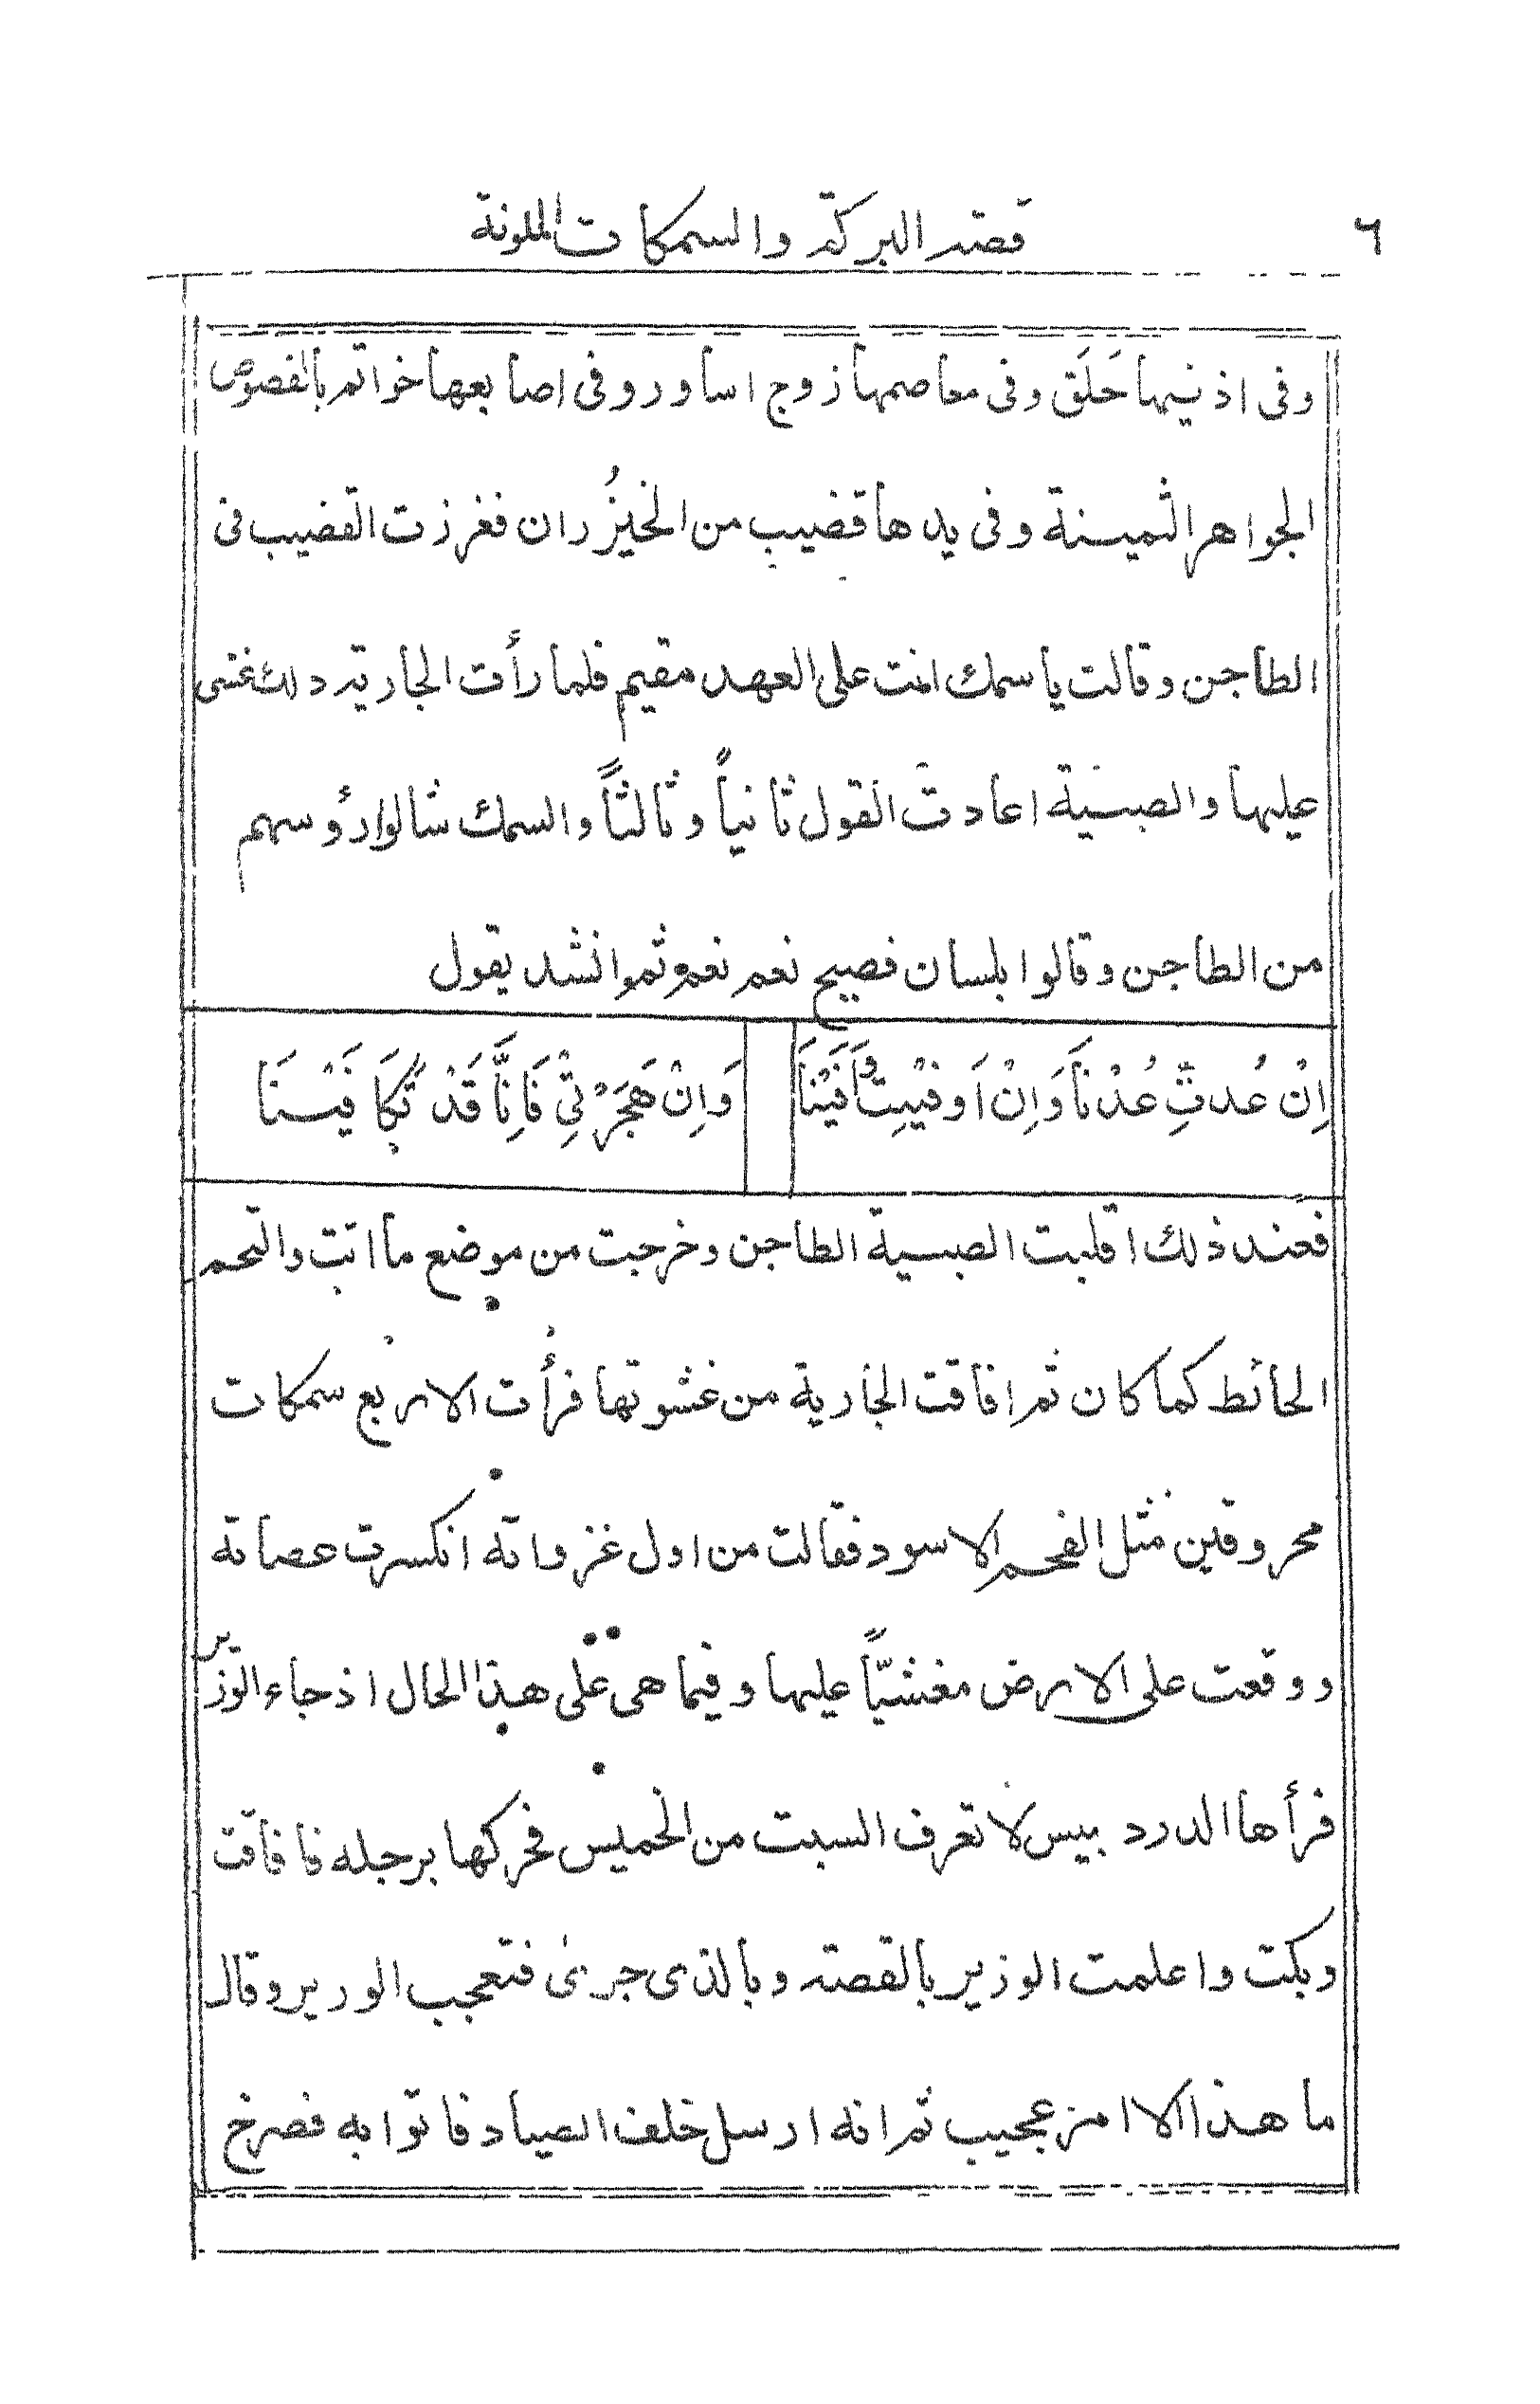 ٦
قصة البركة والسمكات الملونة
وفى اذنيها حَلَق وفى معاصمها زوج اساور وفى اصابعها خواتم بالفصوص
الجواهر الثمينة وفى يدها قضيب من الخيزُران فغرزت القضيب فى
الطاجن وقالت يا سمك انت على العهد مقيم فلما رأت الجارية ذلك غشى
عليها والصبية اعادت القول ثانياً وثالثاً والسمك شالوا رؤسهم
من الطاجن وقالوا بلسان فصيح نعم نعم ثم وانشد يقول
اِنْ عُدتِّ عُدْنَا وَاِنْ اَوفيْتِ اَوفَيْنَا وَاِنْ هَجَرْتِي فَاِنَّا قَدْ تَكَافَيْنَا
فعند ذلك اقلبت الصبية الطاجن وخرجت من موضع ما اتت والتحم
الحائط كما كان ثم افاقت الجارية من غشوتها فرأت الاربع سمكات
محروقين مثل الفحم الاسود فقالت من اول غزواته انكسرت عصاته
ووقعت على الارض مغشيّاً عليها وفيما هى على هذا الحال اذ جاء الوزير
فرأها الدردبيس لا تعرف السبت من الخميس فحركها برجله فافاقت
وبكت واعلمت الوزير بالقصة وبالذى جرى فتعجب الوزير وقال
ما هذا الا امر عجيب ثم انه ارسل خلف الصياد فاتوا به فصرخ